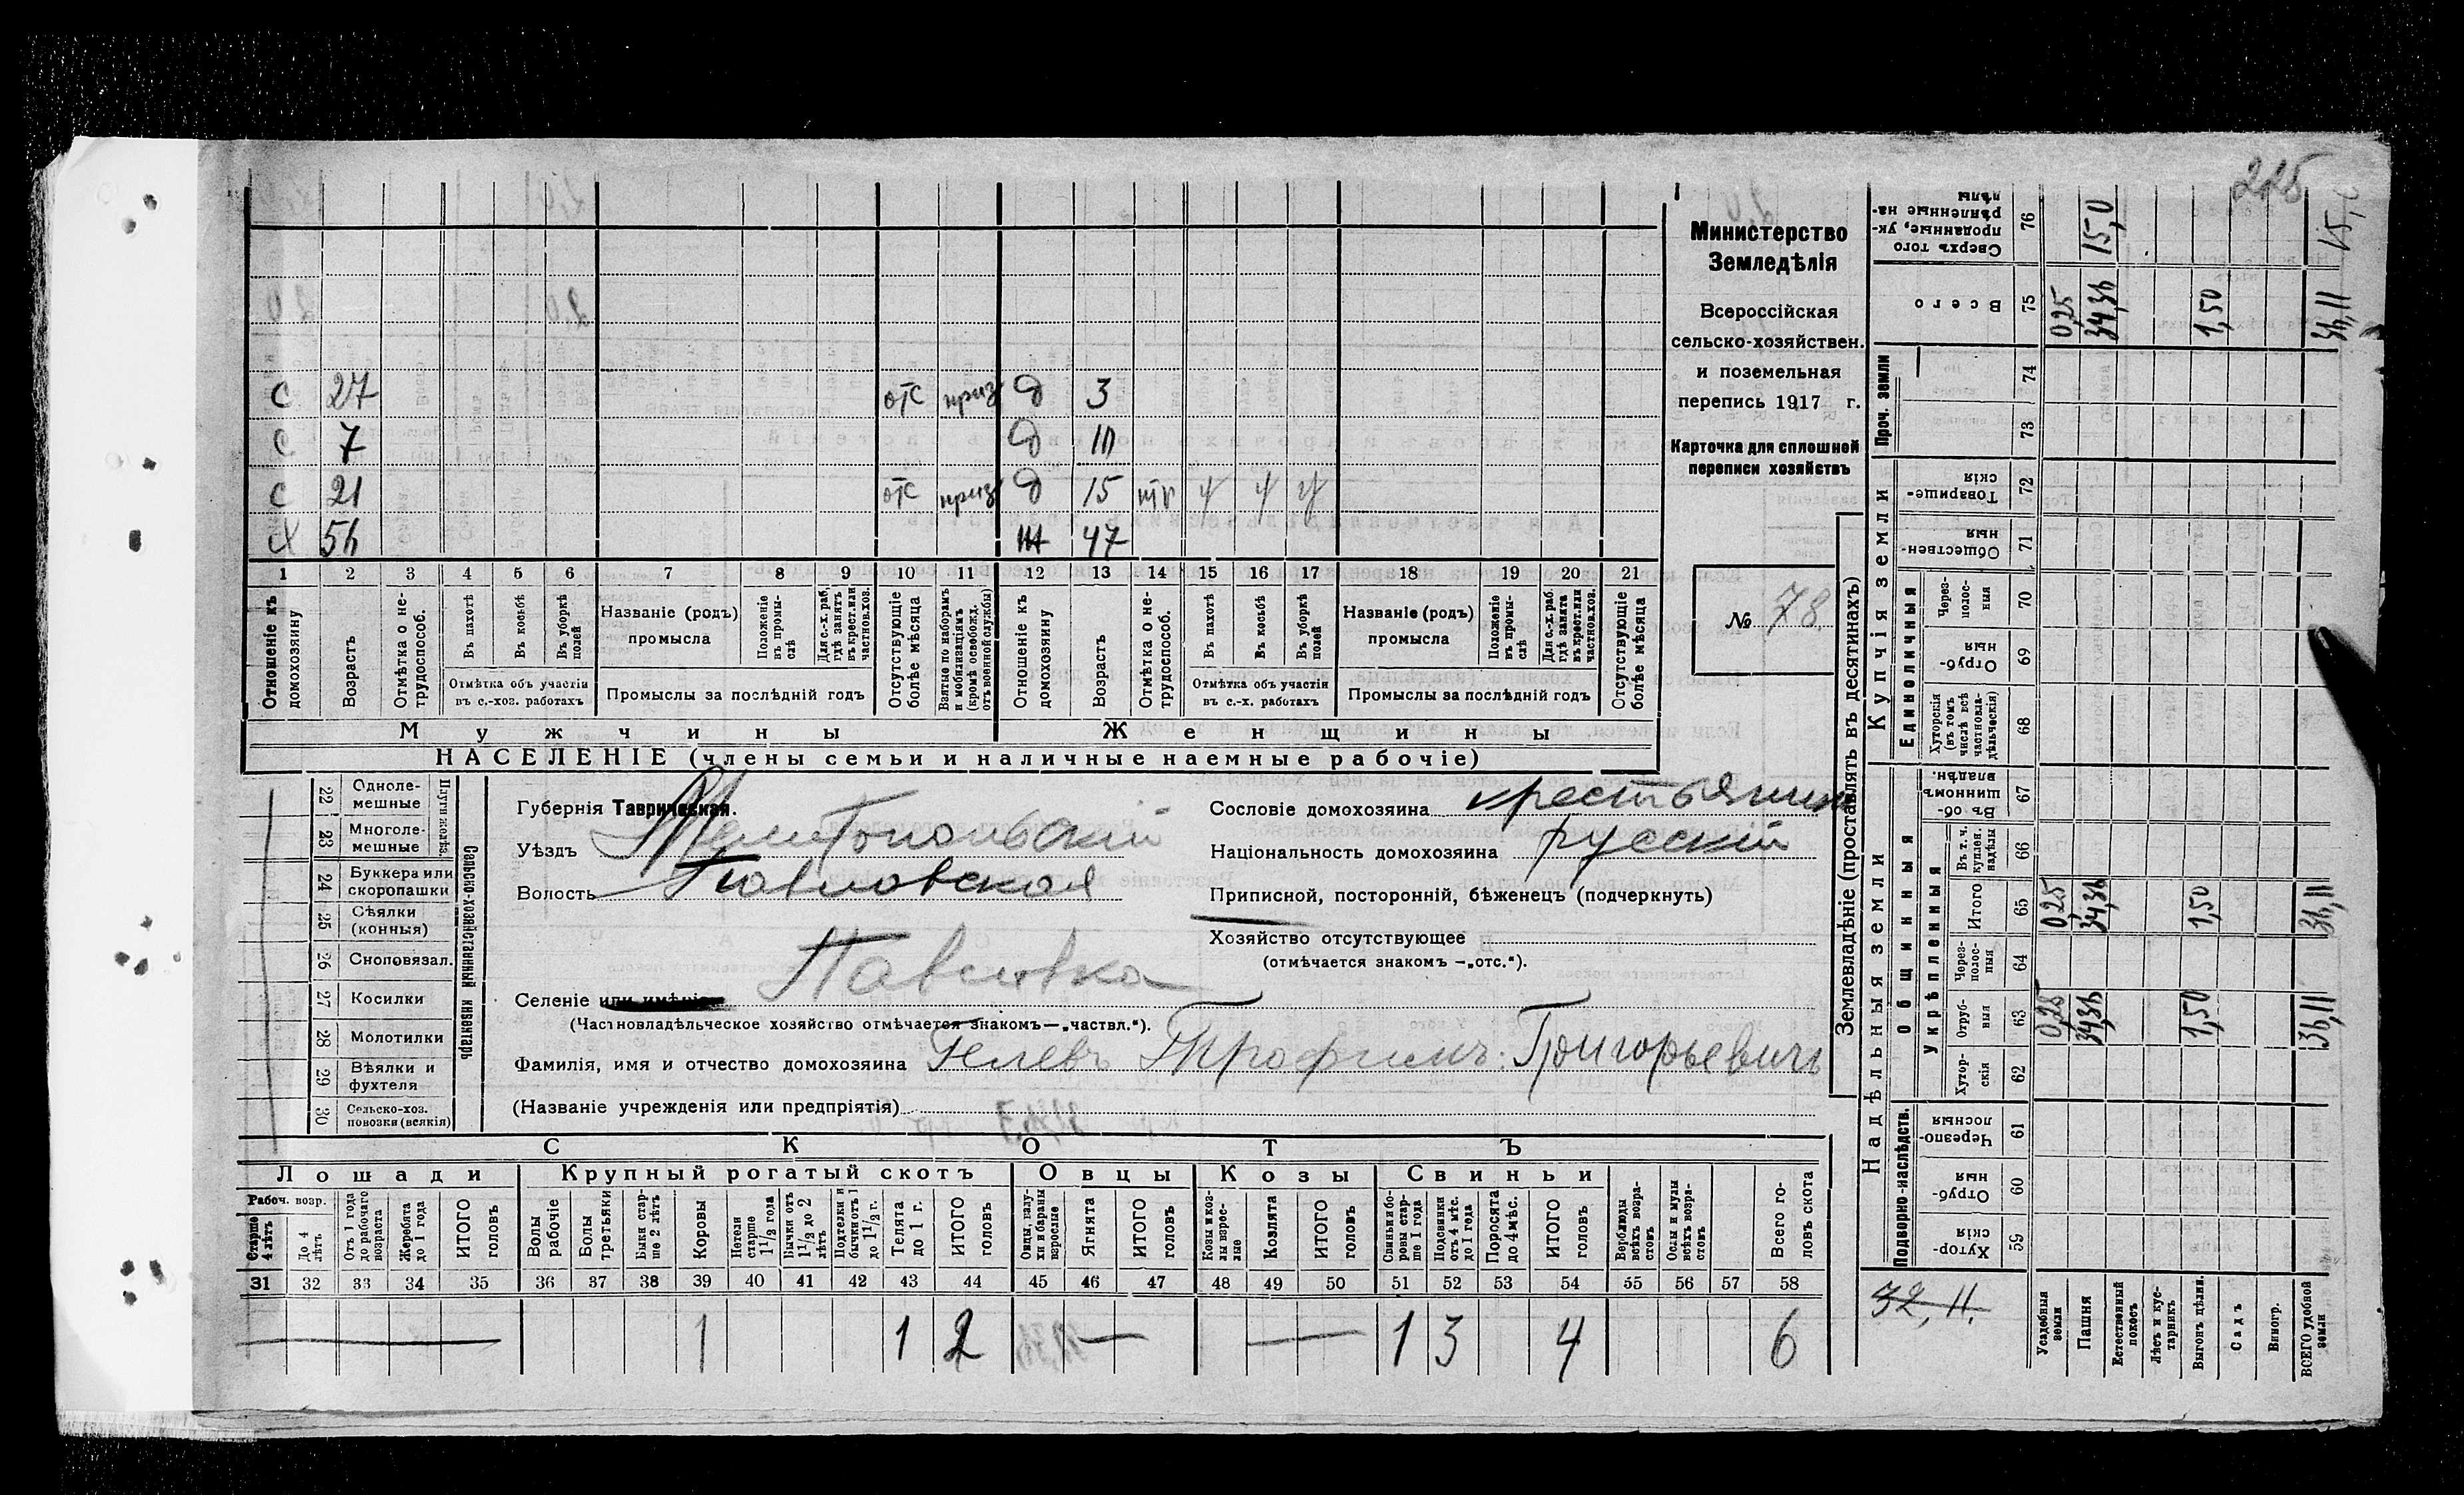 225
Министерство
Земледѣлія
Всероссійская
сельско-хозяйствен.
и поземельная
перепись 1917 г.
Карточка для сплошной
переписи хозяйствъ
№ 78
С 27 отс приз д 3
С 7 д 10
С 21 отс приз д 15 ч ч ч
Х 56 ж 47
1 2 3 4 5 6 7 8 9 10 11 12 13 14 15 16 17 18 19 20 21
Отношеніе къ домохозяину
Возрастъ
Отмѣтка о не-трудоспособ.
Въ пахотѣ
Въ косьбѣ
Въ уборкѣ полей
Отмѣтка объ участіи
въ с.-хоз. работахъ
Названіе (родъ)
промысла
Положеніе въ промы-слѣ
Для с.-х. раб. гдѣ занятъ въ крест. или частнов. хоз.
Промыслы за послѣдній годъ
Отсутствующіе болѣе мѣсяца
Взятые по наборамъ и мобилизаціямъ (кромѣ освобожд. отъ военной службы)
Отношеніе къ домохозяину
Возрастъ
Отмѣтка о не-трудоспособ.
Въ пахотѣ
Въ косьбѣ
Въ уборкѣ полей
Отмѣтка объ участіи
въ с.-х. работахъ
Названіе (родъ)
промысла
Положеніе въ промы-слѣ
Для с.-х. раб. гдѣ занята въ крест. или частнов. хоз.
Промыслы за послѣдній годъ
Отсутствующіе болѣе мѣсяца
Мужчины Женщины
НАСЕЛЕНІЕ (члены семьи и наличные наемные рабочіе)
Сельско-хозяйственный инвентарь
Плуги желѣз.
22 Одноле-мешные
23 Многоле-мешные
24 Буккера или скоропашки
25 Сѣялки (конныя)
26 Сноповязал.
27 Косилки
28 Молотилки
29 Вѣялки и фухтеля
30 Сельско-хоз. повозки (всякія)
Губернія Таврическая.
Уѣздъ Мелитопольскій
Волость Павловская
Селеніе или имѣніе Павловка
(Частновладѣльческое хозяйство отмѣчается знакомъ—„частвл.“).
Фамилія, имя и отчество домохозяина Гелевъ Трофимъ Григорьевичъ
(Названіе учрежденія или предпріятія)
Сословіе домохозяина крестьянинъ
Національность домохозяина русскій
Приписной, посторонній, бѣженецъ (подчеркнуть)
Хозяйство отсутствующее
(отмѣчается знакомъ —„отс.“).
СКОТЪ
Лошади Крупный рогатый скотъ Овцы Козы Свиньи
Рабоч. возр.
Старше 4 лѣтъ
До 4 лѣтъ
Отъ 1 года до рабочаго возраста
Жеребята до 1 года
ИТОГО головъ
Волы рабочіе
Волы третьяки
Быки стар-ше 2 лѣтъ
Коровы
Нетели старше 1½ года
Бычки отъ 1½ до 2 лѣтъ
Подтелки и бычки отъ 1 до 1½ г.
Телята до 1 г.
ИТОГО головъ
Овцы, валу-хи и бараны взрослые
Ягнята
ИТОГО головъ
Козы и коз-лы взрос-лые
Козлята
ИТОГО головъ
Свиньи и бо-ровы стар-ше 1 года
Подсвинки отъ 4 мѣс. до 1 года
Поросята до 4 мѣс.
ИТОГО головъ
Верблюды всѣхъ возра-стовъ
Ослы и мулы всѣхъ возра-стовъ
Всего го-ловъ скота
31 32 33 34 35 36 37 38 39 40 41 42 43 44 45 46 47 48 49 50 51 52 53 54 55 56 57 58
1 1 2 — — 1 3 4 6
Землевладѣніе (проставлять въ десятинахъ)
Надѣльныя земли
Купчія земли
Проч. земли
Подворно-наслѣдств.
Общинныя
Укрѣпленныя
Единоличныя
Сверхъ того проданные, ук-рѣпленные на-дѣлы 76 15,0 15,0
Всего 75 0,25 34,36 1,50 36,11
74
73
Товарище-скія 72
Обществен-ныя 71
Через-полос-ныя 70
Отруб-ныя 69
Хуторскія (въ томъ числѣ всѣ частновла-дѣльческія) 68
Въ об-щинномъ владѣн. 67
Въ т. ч. куплен. надѣлы 66
Итого 65 0,25 34,36 1,50 36,11
Через-полос-ныя 64
Отруб-ныя 63 0,25 34,36 1,50 36,11
Хутор-скія 62
Черезпо-лосныя 61
Отруб-ныя 60
Хутор-скія 59
32,11.
Усадебныя земли
Пашня
Естественный покосъ
Лѣсъ и кус-тарникъ
Выгонъ цѣлин.
Садъ
Виногр.
ВСЕГО удобной земли